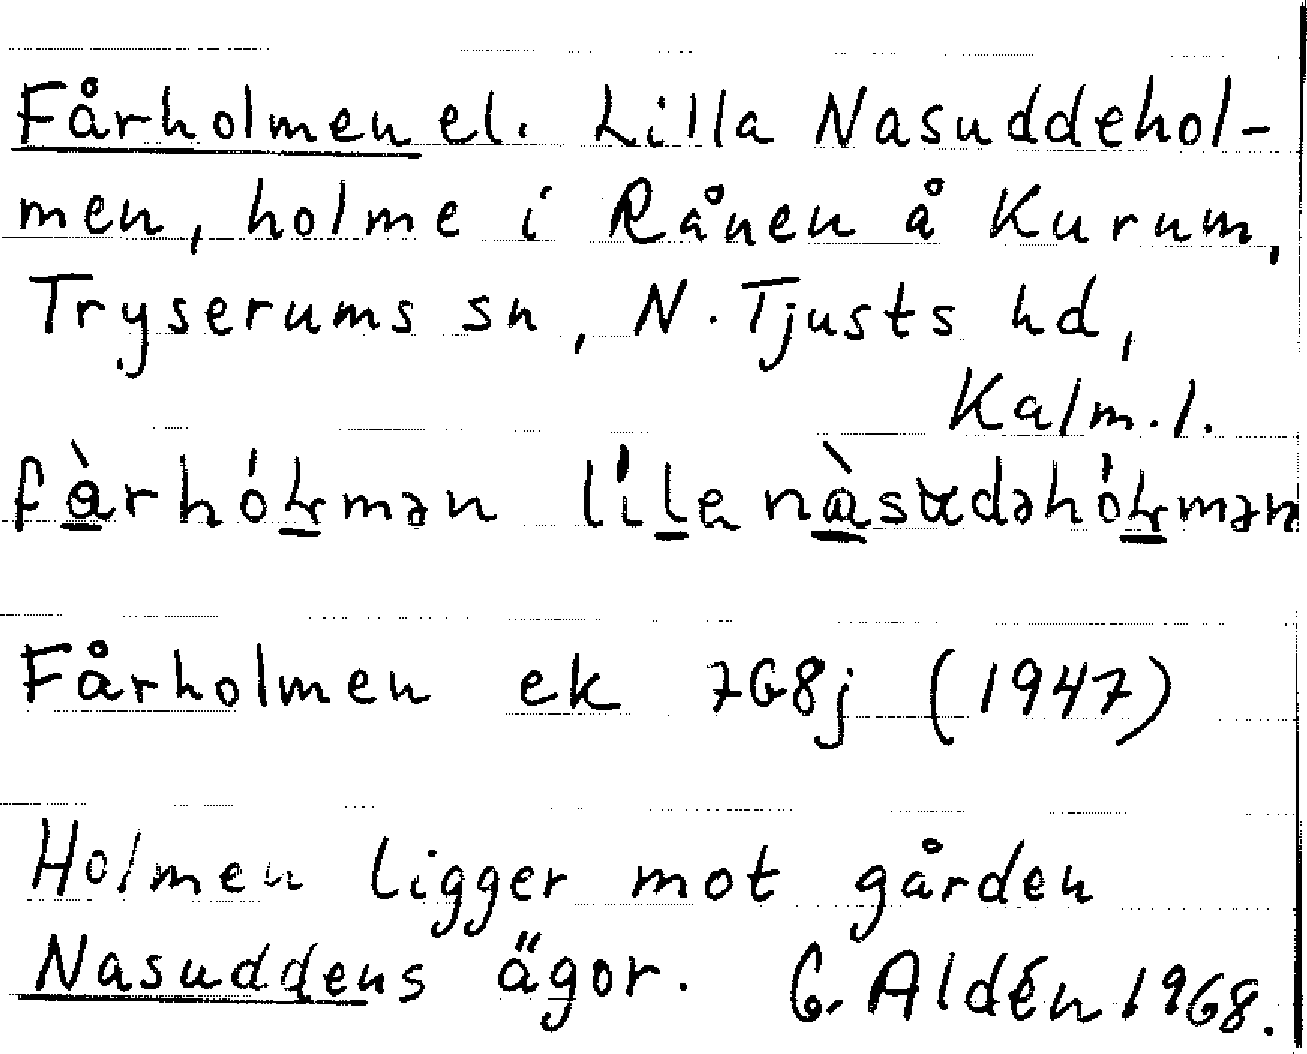 Fårholmen el. Lilla Nasuddehol-
men, holme i Rånen å Kurum,
Tryserums sn, N. Tjusts hd,
Kalm. l.
Fårholmen ek 7G8j (1947)
Holmen ligger mot gården
Nasuddens ägor. G. Aldén 1968.